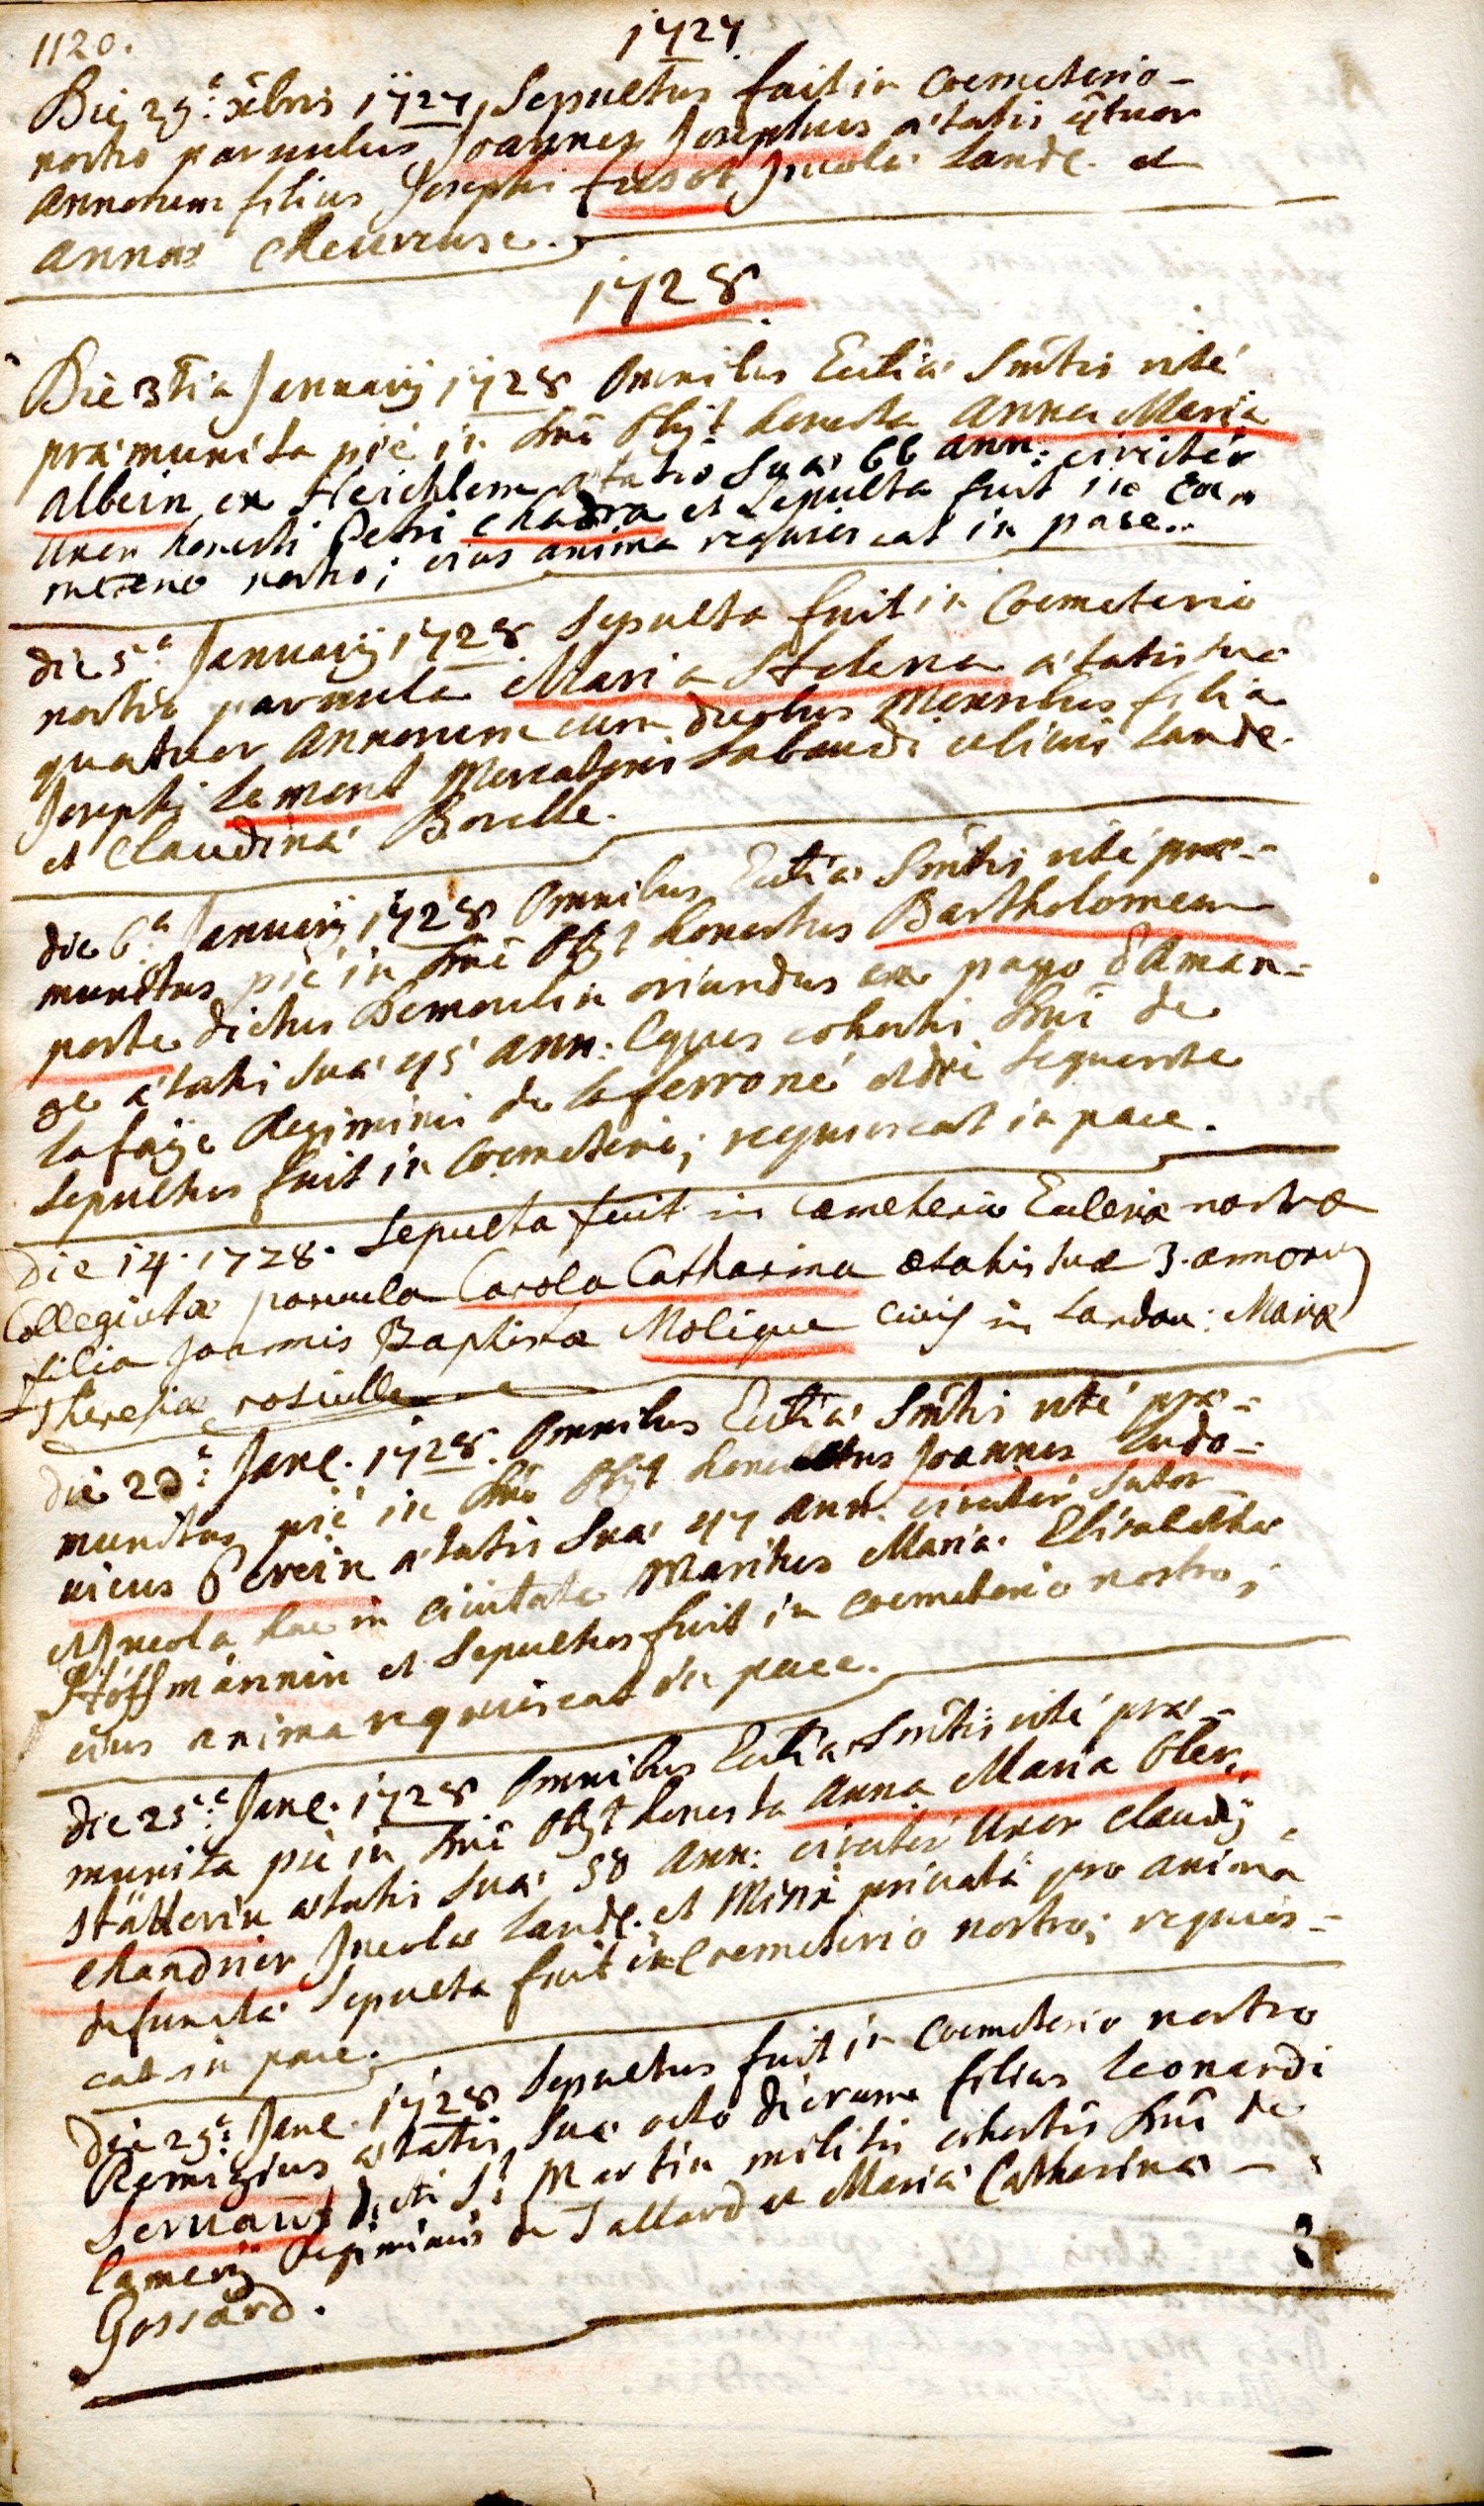 1120.
1727
Die 29.a xbris 1727, Sepultus fuit in Coemeterio
nostro parvulus Joannes Josephus ætatis q̃tuor
annorum filius Josephi frisot Jncolæ Land. et
Annæ Cheureuse.
1728
Die 3tia Januarij 1728 Omnibus Ecclīæ Smtis rité
præmunita pié in Dnō Obijt honesta Anna Maria
Albein ex Heichlem ætatis Suæ 66 ann: circiter
Uxor honesti Petri Chadra et Sepulta fuit in Coe-
meterio nostro; eius anima requiescat in pace.
die 5.a Januarij 1728 Sepulta fuit in Coemeterio
nostro parvula Maria Helena ætatis suæ
quatuor Annorum cum duobus Mensibus filia
Josephi Lemont Mercatoris Sabaudi civis Land.
et Claudinæ Borelle.
die 6.a Januarij 1728 Omnibus Ecclīæ Smtis rité præ-
munitus pié in Dnō Obijt honestus Bartholomeus
porte dictus Demoulin oriundus ex pago d'Aman-
ge ætatis suæ 45 ann: Eques cohortis Dni de
Lafaÿe Regiminis de Laferroné et die Sequente
Sepultus fuit in Coemeterio; requiescat in pace.
Die 14. 1728. Sepulta fuit in cæmeterio Eccleriæ nostræ
Collegiatæ parvula Carola Catharina ætatis suæ 3. annorum
filia Joannis Baptistæ Molique civis in Landau: Mariæ
Theresiæ rosiulle
die 20.a Janr. 1728. Omnibus Ecclīæ Smtis rité præ-
munitus pié in Dnō Obijt honestus Joannes Ludo-
vicus Perein ætatis Suæ 47 ann. circiter Sutor
et Jncola hac in civitate Maritus Mariæ Elisabethæ
Hoffmännin et Sepultus fuit in coemeterio nostro;
eius anima requiescat in pace.
die 25.a Janr. 1728 Omnibus Ecclīæ Smtis rité præ-
munita pié in Dnō Obijt honesta Anna Maria Ober-
stätterin ætatis Suæ 58 ann: circiter Uxor Claudij
Chandrier Jncolæ Land. et Missa privatâ pro anima
defunctæ Sepulta fuit in Coemeterio nostro; requies-
cat in pace.
Die 29.a Janr. 1728 Sepultus fuit in Coemeterio nostro
Remigius ætatis Suæ octo dierum filius Leonardi
Servant dicti St. Martin militis cohortis Dni de
Camerij Regiminis de Tallard et Mariæ Catharinæ
Gossard.